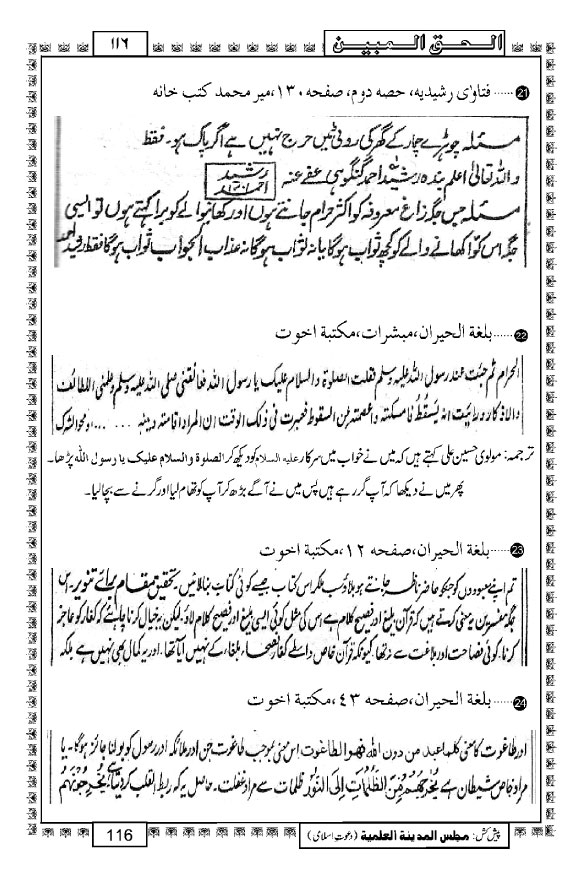 ۱۱۶
الحق المبین
21 ...... فتاوٰی رشیدیہ، حصہ دوم، صفحہ ۱۳۰، میر محمد کتب خانہ
مسئلہ چوہڑے چمار کے گھر کی روٹی میں حرج نہیں ہے اگر پاک ہو۔ فقط
واللہ تعالیٰ اعلم بندہ رشید احمد گنگوہی عفے عنہ رشید احمد ۱۳۰۱
مسئلہ جس جگہ زاغ معروفہ کو اکثر حرام جانتے ہوں اور کھانیوالے کو برا کہتے ہوں تو ایسی
جگہ اس کوا کھانے والے کو کچھ ثواب ہوگا یا نہ ثواب ہوگا نہ عذاب الجواب ثواب ہوگا فقط رشید احمد
22 ...... بلغة الحیران، مبشرات، مکتبة اخوت
الحرام ثم جئت عند رسول اللہ علیہ وسلم فقلت الصلوة والسلام علیک یا رسول اللہ فعانقنی صلی اللہ علیہ وسلم وعلمنی اللطائف
والاذکار ورایت انہ یسقط فامسکتہ واعصمتہ عن السقوط فعبرت فی ذلک الوقت ان المراد اقامتہ دینہ ...... او محو الشرک
ترجمہ: مولوی حسین علی کہتے ہیں کہ میں نے خواب میں سرکار علیہ السلام کو دیکھ کر الصلوة والسلام علیک یا رسول اللہ پڑھا۔
پھر میں نے دیکھا کہ آپ گر رہے ہیں پس میں نے آگے بڑھ کر آپ کو تھام لیا اور گرنے سے بچالیا۔
23 ...... بلغة الحیران، صفحہ ۱۲، مکتبة اخوت
تم اپنے معبودوں کو جنکو حاضر ناظر جانتے ہو بلاؤ سب ملکر اس کتاب جیسے کوئی کتاب بنالائیں۔ تحقیق مقام برائے تنویر۔ اس
جگہ مفسرین یہ معنی کرتے ہیں کہ قرآن بلیغ اور فصیح کلام ہے اس کی مثل کوئی ایسی بلیغ اور فصیح کلام لاؤ۔ لیکن یہ خیال کرنا چاہئے کہ کفار کو عاجز
کرنا، کوئی فصاحت اور بلاغت سے نہ تھا، کیونکہ قرآن خاص واسطے کفار فصحاء بلغاء کے نہیں آیا تھا۔ اور یہ کمال بھی نہیں ہے بلکہ
24 ...... بلغة الحیران، صفحہ ۴۳، مکتبة اخوت
اور طاغوت کا معنی کلما عبد من دون اللہ فہو الطاغوت اس معنی بموجب طاغوت جن اور ملائکہ اور رسول کو بولنا جائز ہوگا۔ یا
مراد خاص شیطان ہے یُخْرِجُهُمْ مِّنَ الظُّلُمَاتِ اِلَی النُّوْرِ ظلمات سے مراد غفلت۔ حاصل یہ کہ ربط القلب کردیتا ہے یُخْرِجُوْنَهُمْ
116
پیش کش: مجلس المدینة العلمیة (دعوت اسلامی)